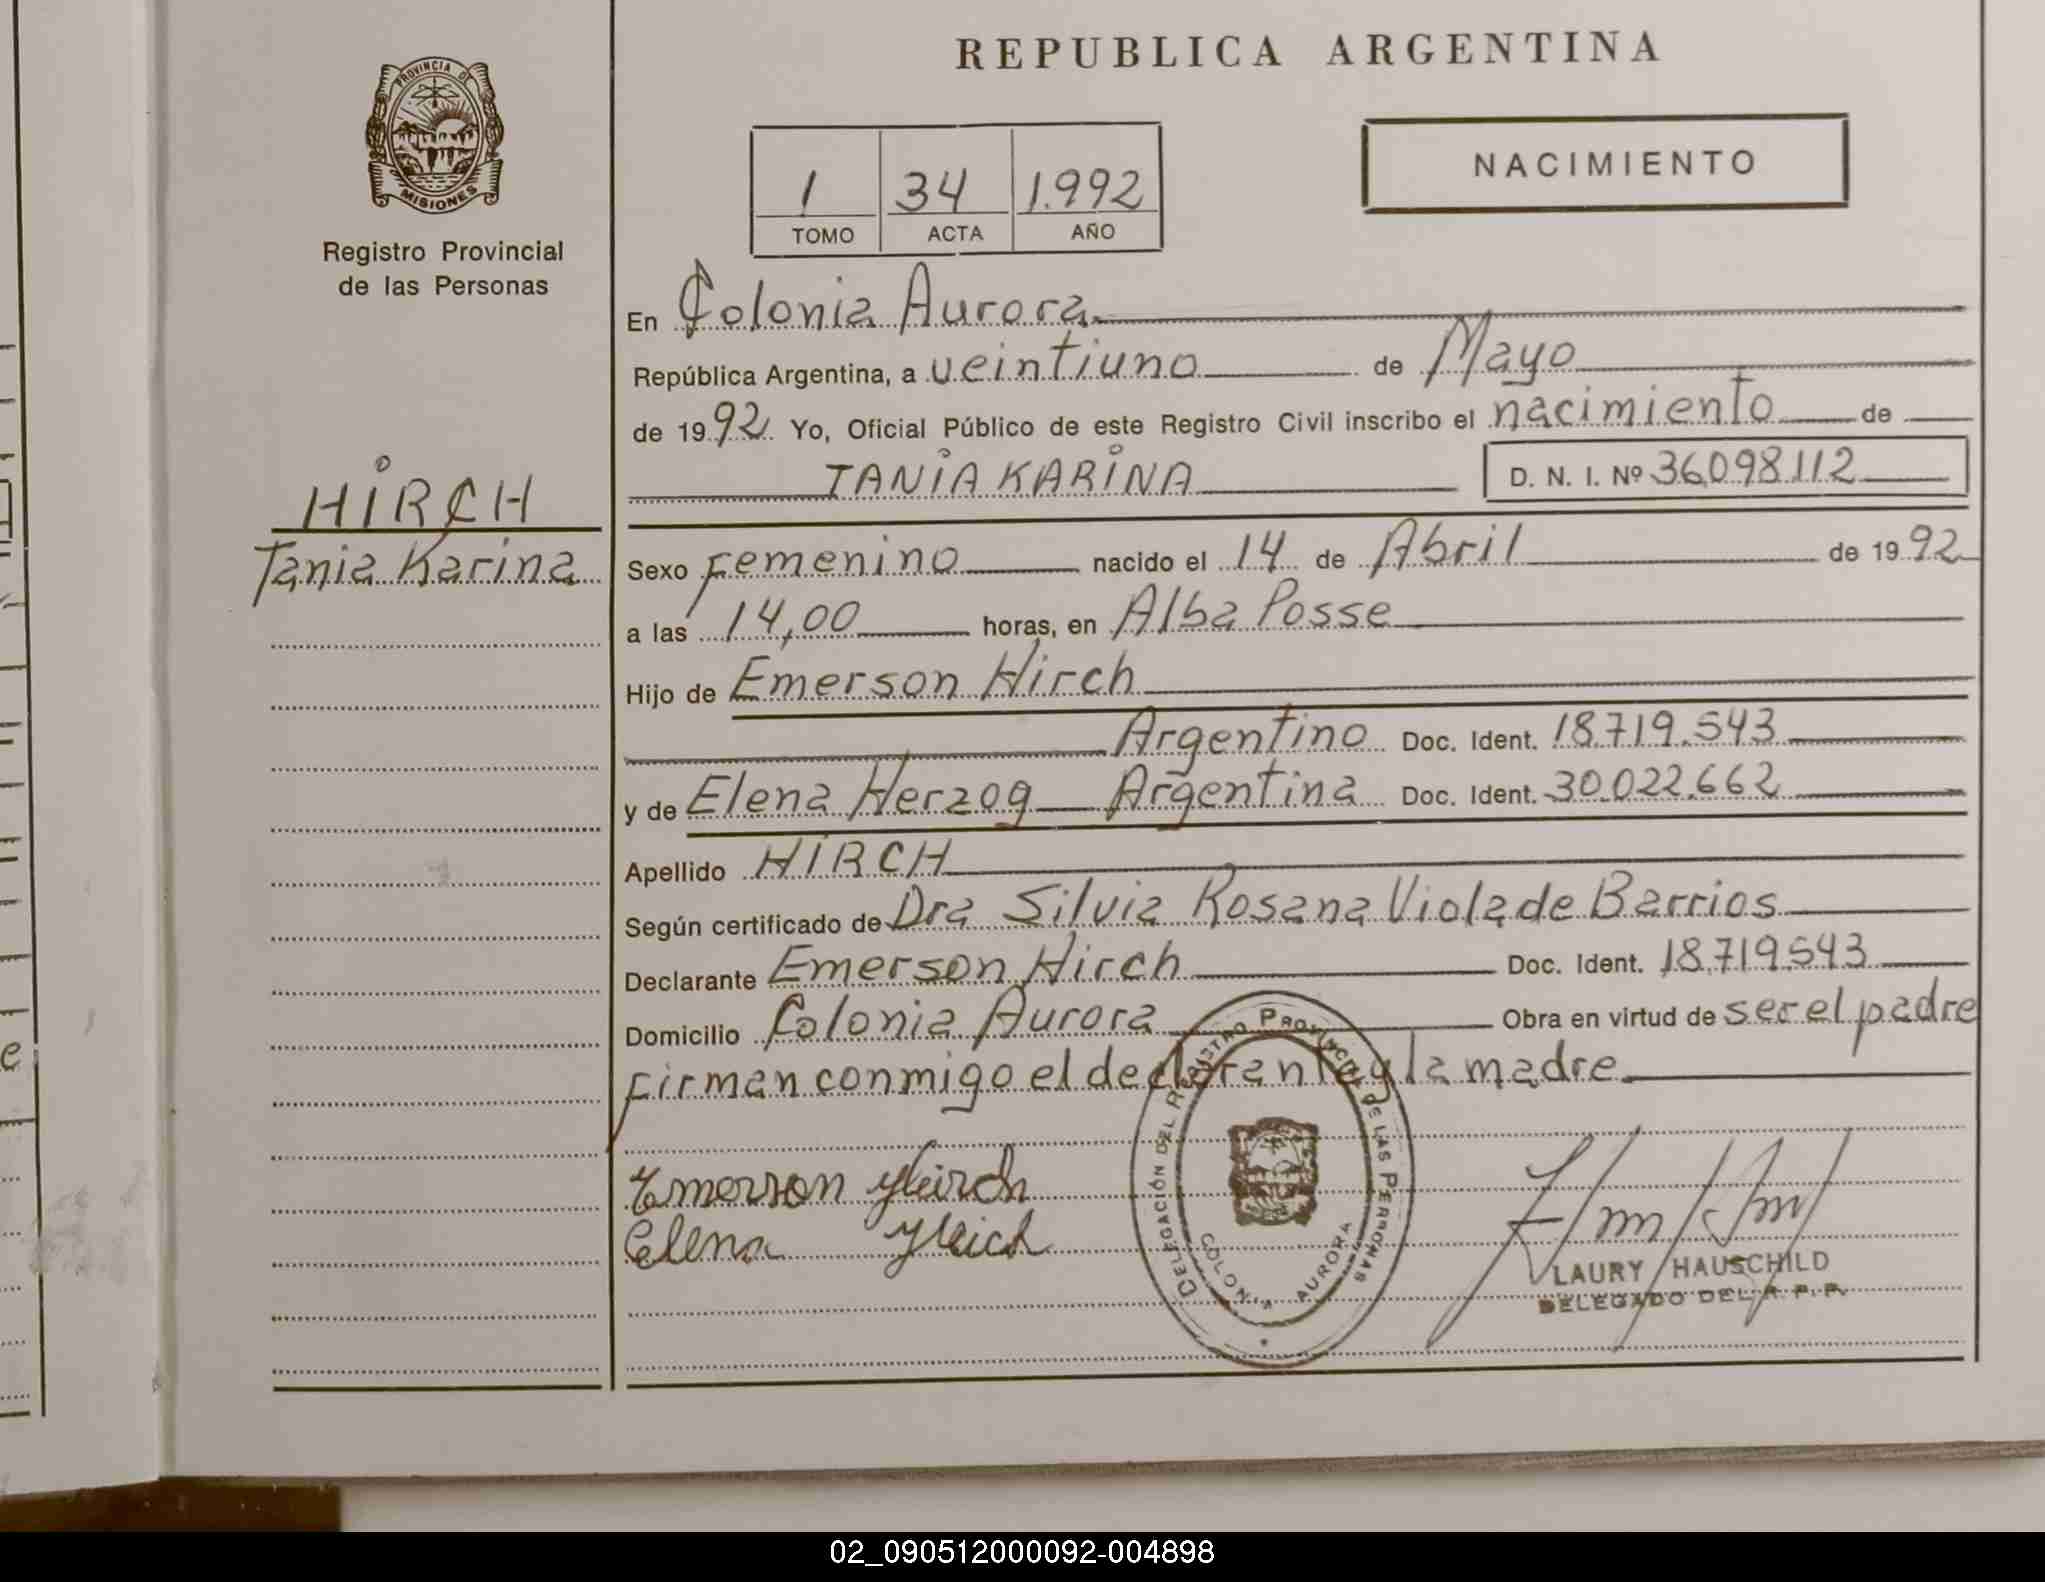 REPUBLICA ARGENTINA
PROVINCIA DE
MISIONES
Registro Provincial
de las Personas
1 34 1.992
TOMO ACTA AÑO
NACIMIENTO
En Colonia Aurora
República Argentina, a veintiuno de Mayo
de 1992 Yo, Oficial Público de este Registro Civil inscribo el nacimiento de
TANIA KARINA D. N. I. Nº 36.098.112
HIRCH
Tania Karina
Sexo Femenino nacido el 14 de Abril de 1992
a las 14,00 horas, en Alba Posse
Hijo de Emerson Hirch
Argentino Doc. Ident. 18.719.543
y de Elena Herzog Argentina Doc. Ident. 30.022.662
Apellido HIRCH
Según certificado de Dra Silvia Rosana Viola de Barrios
Declarante Emerson Hirch Doc. Ident. 18.719.543
Domicilio Colonia Aurora Obra en virtud de ser el padre
Firman conmigo el declarante y la madre
Emerson Heirch
Elena
DELEGACIÓN DEL REGISTRO PROVINCIAL DE LAS PERSONAS
COLONIA AURORA
LAURY HAUSCHILD
DELEGADO DEL R. P. P.
e
02_090512000092-004898